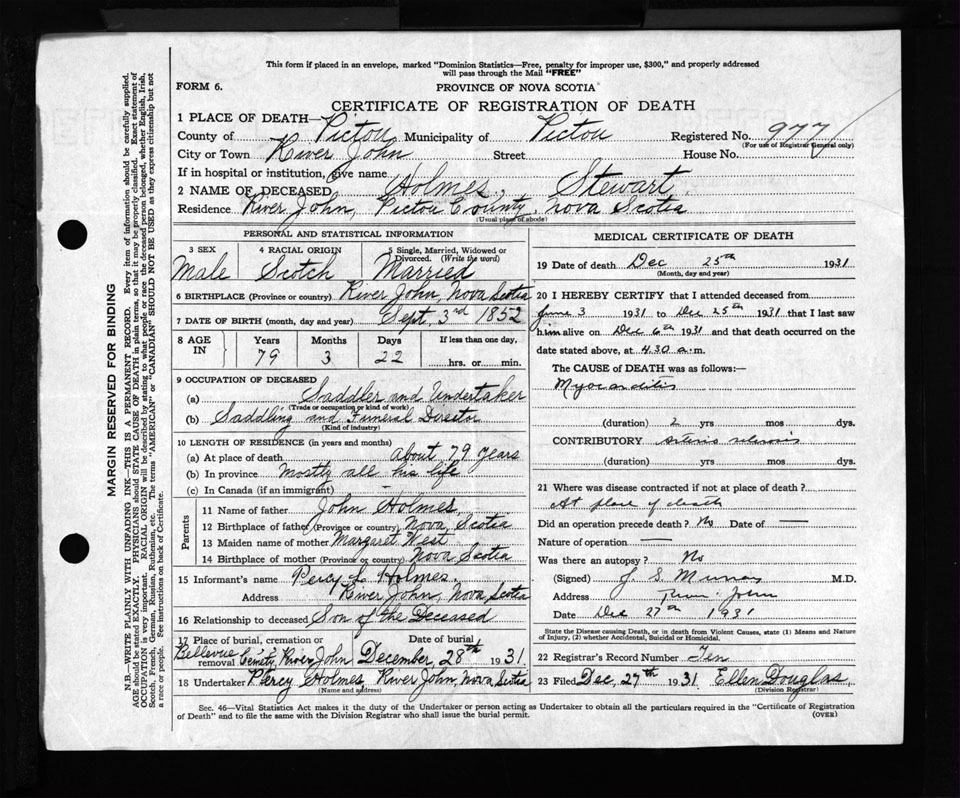 This form if placed in an envelope, marked "Dominion Statistics—Free, penalty for improper use, $300," and properly addressed
will pass through the Mail "FREE"
FORM 6.
PROVINCE OF NOVA SCOTIA
CERTIFICATE OF REGISTRATION OF DEATH
1 PLACE OF DEATH—
County of Pictou Municipality of Pictou Registered No. 977
(For use of Registrar General only)
City or Town River John Street House No.
If in hospital or institution, give name
2 NAME OF DECEASED Holmes, Stewart
Residence River John, Pictou County, Nova Scotia
(Usual place of abode)
PERSONAL AND STATISTICAL INFORMATION
3 SEX 4 RACIAL ORIGIN 5 Single, Married, Widowed or Divorced. (Write the word)
Male Scotch Married
6 BIRTHPLACE (Province or country) River John, Nova Scotia
7 DATE OF BIRTH (month, day and year) Sept. 3rd 1852
8 AGE IN Years Months Days If less than one day,
79 3 22 hrs. or min.
9 OCCUPATION OF DECEASED
(a) Saddler and Undertaker
(Trade or occupation or kind of work)
(b) Saddling and Funeral Director
(Kind of industry)
10 LENGTH OF RESIDENCE (in years and months)
(a) At place of death about 79 years
(b) In province Mostly all his life
(c) In Canada (if an immigrant) —
Parents
11 Name of father John Holmes,
12 Birthplace of father (Province or country) Nova Scotia
13 Maiden name of mother Margaret West
14 Birthplace of mother (Province or country) Nova Scotia
15 Informant's name Percy L Holmes.
Address River John, Nova Scotia
16 Relationship to deceased Son of the Deceased
17 Place of burial, cremation or removal Date of burial
Bellevue River John December, 28th 1931
18 Undertaker Percy Holmes, River John, Nova Scotia
(Name and address)
MEDICAL CERTIFICATE OF DEATH
19 Date of death Dec 25th 1931
(Month, day and year)
20 I HEREBY CERTIFY that I attended deceased from
June 3 1931 to Dec 25th 1931 that I last saw
him alive on Dec 6th 1931 and that death occurred on the
date stated above, at 4.30 a.m.
The CAUSE OF DEATH was as follows:—
Myocarditis
(duration) 2 yrs mos dys.
CONTRIBUTORY Arterio sclerosis
(duration) yrs mos dys.
21 Where was disease contracted if not at place of death?
At place of death
Did an operation precede death? No Date of —
Nature of operation —
Was there an autopsy? No
(Signed) J. S. Murray M.D.
Address River John
Date Dec 27th 1931
State the Disease causing Death, or in death from Violent Causes, state (1) Means and Nature
of Injury, (2) whether Accidental, Suicidal or Homicidal.
22 Registrar's Record Number Ten
23 Filed Dec, 27th 1931 Ellen Douglas,
(Division Registrar)
Sec. 46—Vital Statistics Act makes it the duty of the Undertaker or person acting as Undertaker to obtain all the particulars required in the "Certificate of Registration
of Death" and to file the same with the Division Registrar who shall issue the burial permit.
(OVER)
MARGIN RESERVED FOR BINDING
N.B.—WRITE PLAINLY WITH UNFADING INK—THIS IS A PERMANENT RECORD. Every item of information should be carefully supplied.
AGE should be stated EXACTLY. PHYSICIANS should STATE CAUSE OF DEATH in plain terms, so that it may be properly classified. Exact statement of
OCCUPATION is very important. RACIAL ORIGIN will be described by stating to what people or race the deceased person belonged, whether English, Irish,
Scotch, French, German, Russian, Ruthenian, etc. The terms "AMERICAN" or "CANADIAN" SHOULD NOT BE USED as they express citizenship but not
a race or people. See instructions on back of Certificate.